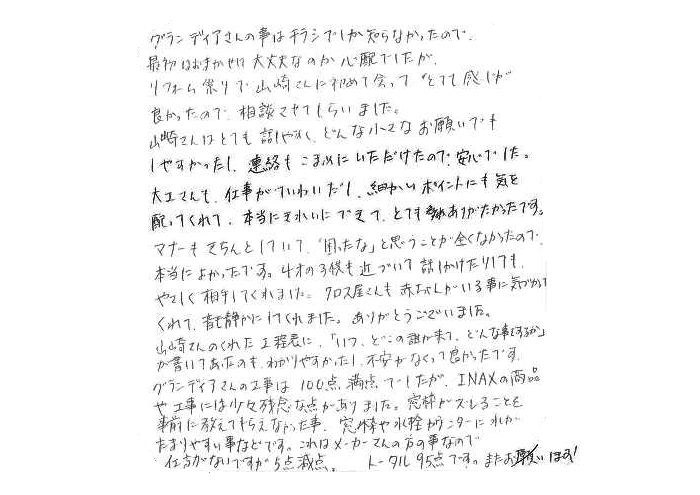 グランディアさんの事はチラシでしか知らなかったので、
最初はおまかせして大丈夫なのか心配でしたが、
リフォーム祭りで山崎さんに初めて会って、とても感じが
良かったので、相談させてもらいました。
山崎さんはとても話しやすく、どんな小さなお願いでも
しやすかったし、連絡もこまめにいただけたので、安心でした。
大工さんも、仕事がていねいだし、細かいポイントにも気を
配ってくれて、本当にきれいにできて、とてもありがたかったです。
マナーもきちんとしていて、「困ったな」と思うことが全くなかったので、
本当によかったです。4才の子供も近づいて話しかけたりしても、
やさしく相手してくれました。クロス屋さんも赤ちゃんがいる事に気づかって
くれて、音も静かにしてくれました。ありがとうございました。
山崎さんのくれた工程表に、「いつ、どこの誰が来て、どんな事をするか」
が書いてあたのも、わかりやすかったし、不安がなくって良かったです。
グランディアさんの工事は100点満点でしたが、INAXの商品
や工事には少々残念な点がありました。窓枠がズレることを
事前に教えてもらえなかった事、窓枠や水栓カウンターに水が
たまりやすい事などです。これはメーカーさんの方の事なので
仕方がないですが5点減点。 トータル95点です。またお願いします!